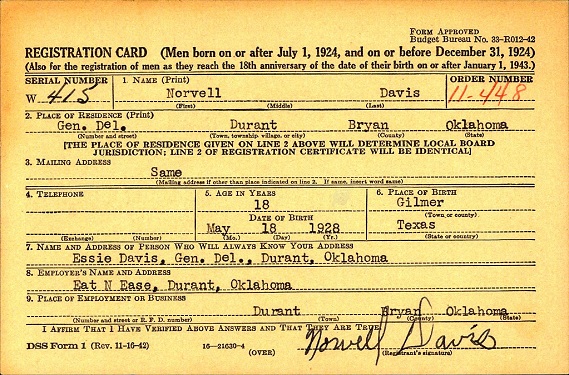 FORM APPROVED
Budget Bureau No. 33-R012-42
REGISTRATION CARD (Men born on or after July 1, 1924, and on or before December 31, 1924)
(Also for the registration of men as they reach the 18th anniversary of the date of their birth on or after January 1, 1943.)
SERIAL NUMBER 1. NAME (Print) ORDER NUMBER
W 415 Norvell Davis 11-448
(First) (Middle) (Last)
2. PLACE OF RESIDENCE (Print)
Gen. Del. Durant Bryan Oklahoma
(Number and street) (Town, township, village, or city) (County) (State)
[THE PLACE OF RESIDENCE GIVEN ON LINE 2 ABOVE WILL DETERMINE LOCAL BOARD
JURISDICTION; LINE 2 OF REGISTRATION CERTIFICATE WILL BE IDENTICAL]
3. MAILING ADDRESS
Same
(Mailing address if other than place indicated on line 2. If same, insert word same)
4. TELEPHONE 5. AGE IN YEARS 6. PLACE OF BIRTH
18 Gilmer
DATE OF BIRTH (Town or county)
May 18 1928 Texas
(Exchange) (Number) (Mo.) (Day) (Yr.) (State or country)
7. NAME AND ADDRESS OF PERSON WHO WILL ALWAYS KNOW YOUR ADDRESS
Essie Davis, Gen. Del., Durant, Oklahoma
8. EMPLOYER'S NAME AND ADDRESS
Eat N Ease, Durant, Oklahoma
9. PLACE OF EMPLOYMENT OR BUSINESS
Durant Bryan Oklahoma
(Number and street or R. F. D. number) (Town) (County) (State)
I AFFIRM THAT I HAVE VERIFIED ABOVE ANSWERS AND THAT THEY ARE TRUE.
DSS Form 1 (Rev. 11-16-42) 16-21630-4 (OVER) Norvell Davis
(Registrant's signature)